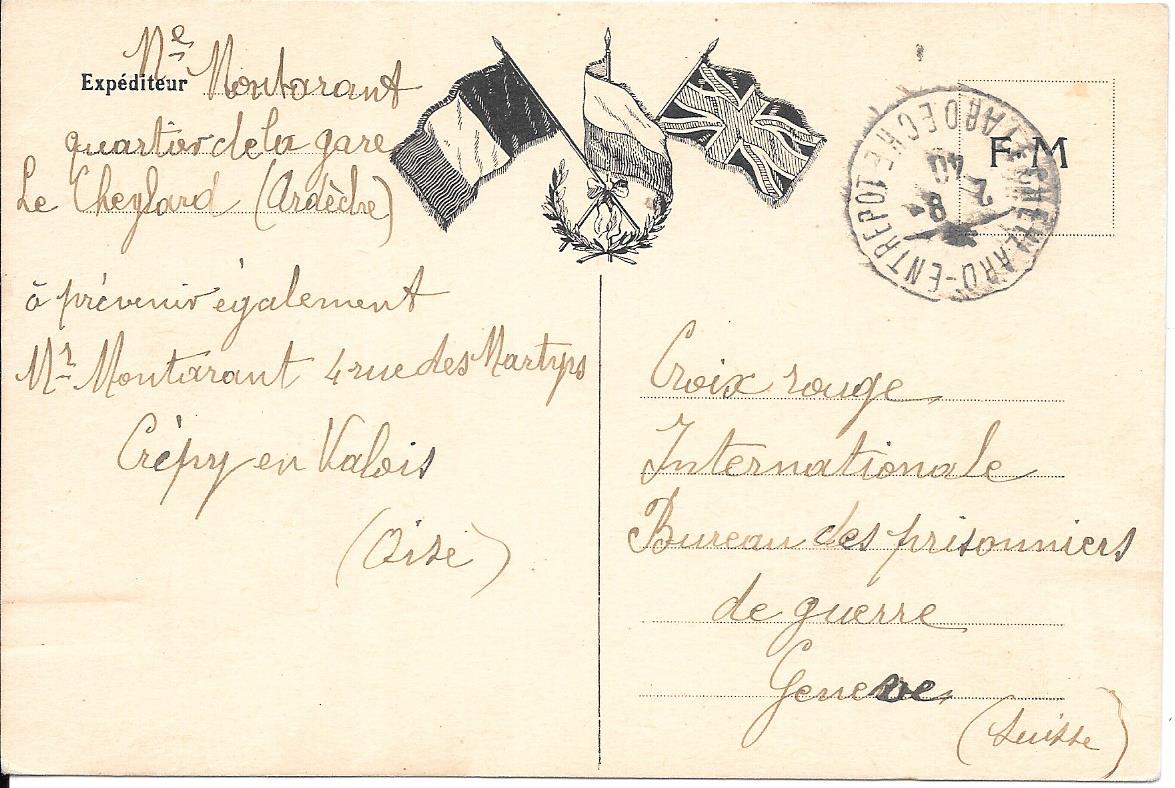 Expéditeur Me Montarant
quartier de la gare
Le Cheylard (Ardèche)
à prévenir également
Mr Montarant 4 rue des Martyrs
Crépy en Valois
(Oise)
F M
LE CHEYLARD-ENTREPOT
ARDECHE
2 8
40
Croix rouge
Internationale
Bureau des prisonniers
de guerre
Geneve
(Suisse)